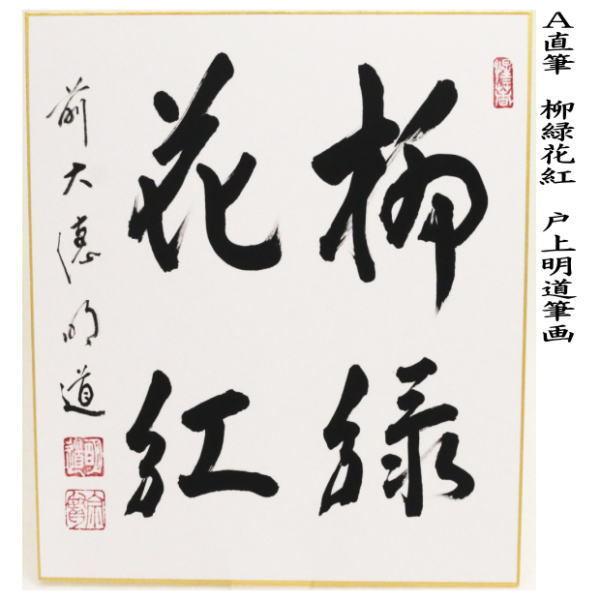 A直筆　柳緑花紅　戸上明道筆画
柳緑
花紅
前大徳明道